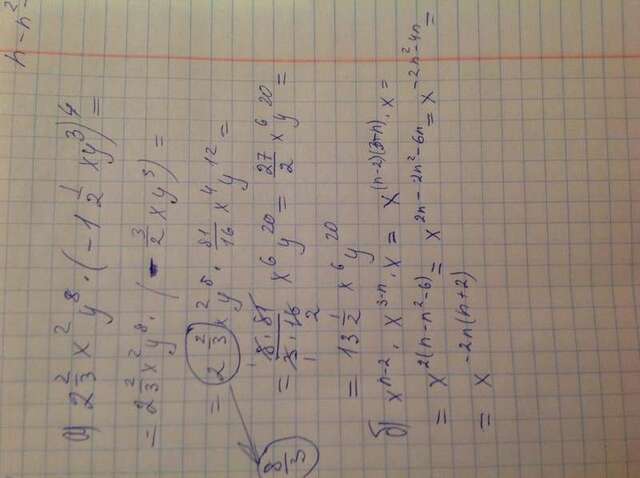 n-n²
а) 2 2/3 x² y⁸ · (-1 1/2 xy³)⁴ =
= 2 2/3 x² y⁸ · (- 3/2 x y³) =
= 2 2/3 x² y⁸ · 81/16 x⁴ y¹² =
8/3
= 8·81/3·16 x⁶ y²⁰ = 27/2 x⁶ y²⁰ =
1 2
= 13 1/2 x⁶ y²⁰
б) xⁿ⁻² · x³⁻ⁿ · x = x⁽ⁿ⁻²⁾⁽³⁻ⁿ⁾ · x =
= x²⁽ⁿ⁻ⁿ²⁻⁶⁾ = x²ⁿ⁻²ⁿ²⁻⁶ⁿ = x⁻²ⁿ²⁻⁴ⁿ =
= x⁻²ⁿ⁽ⁿ⁺²⁾